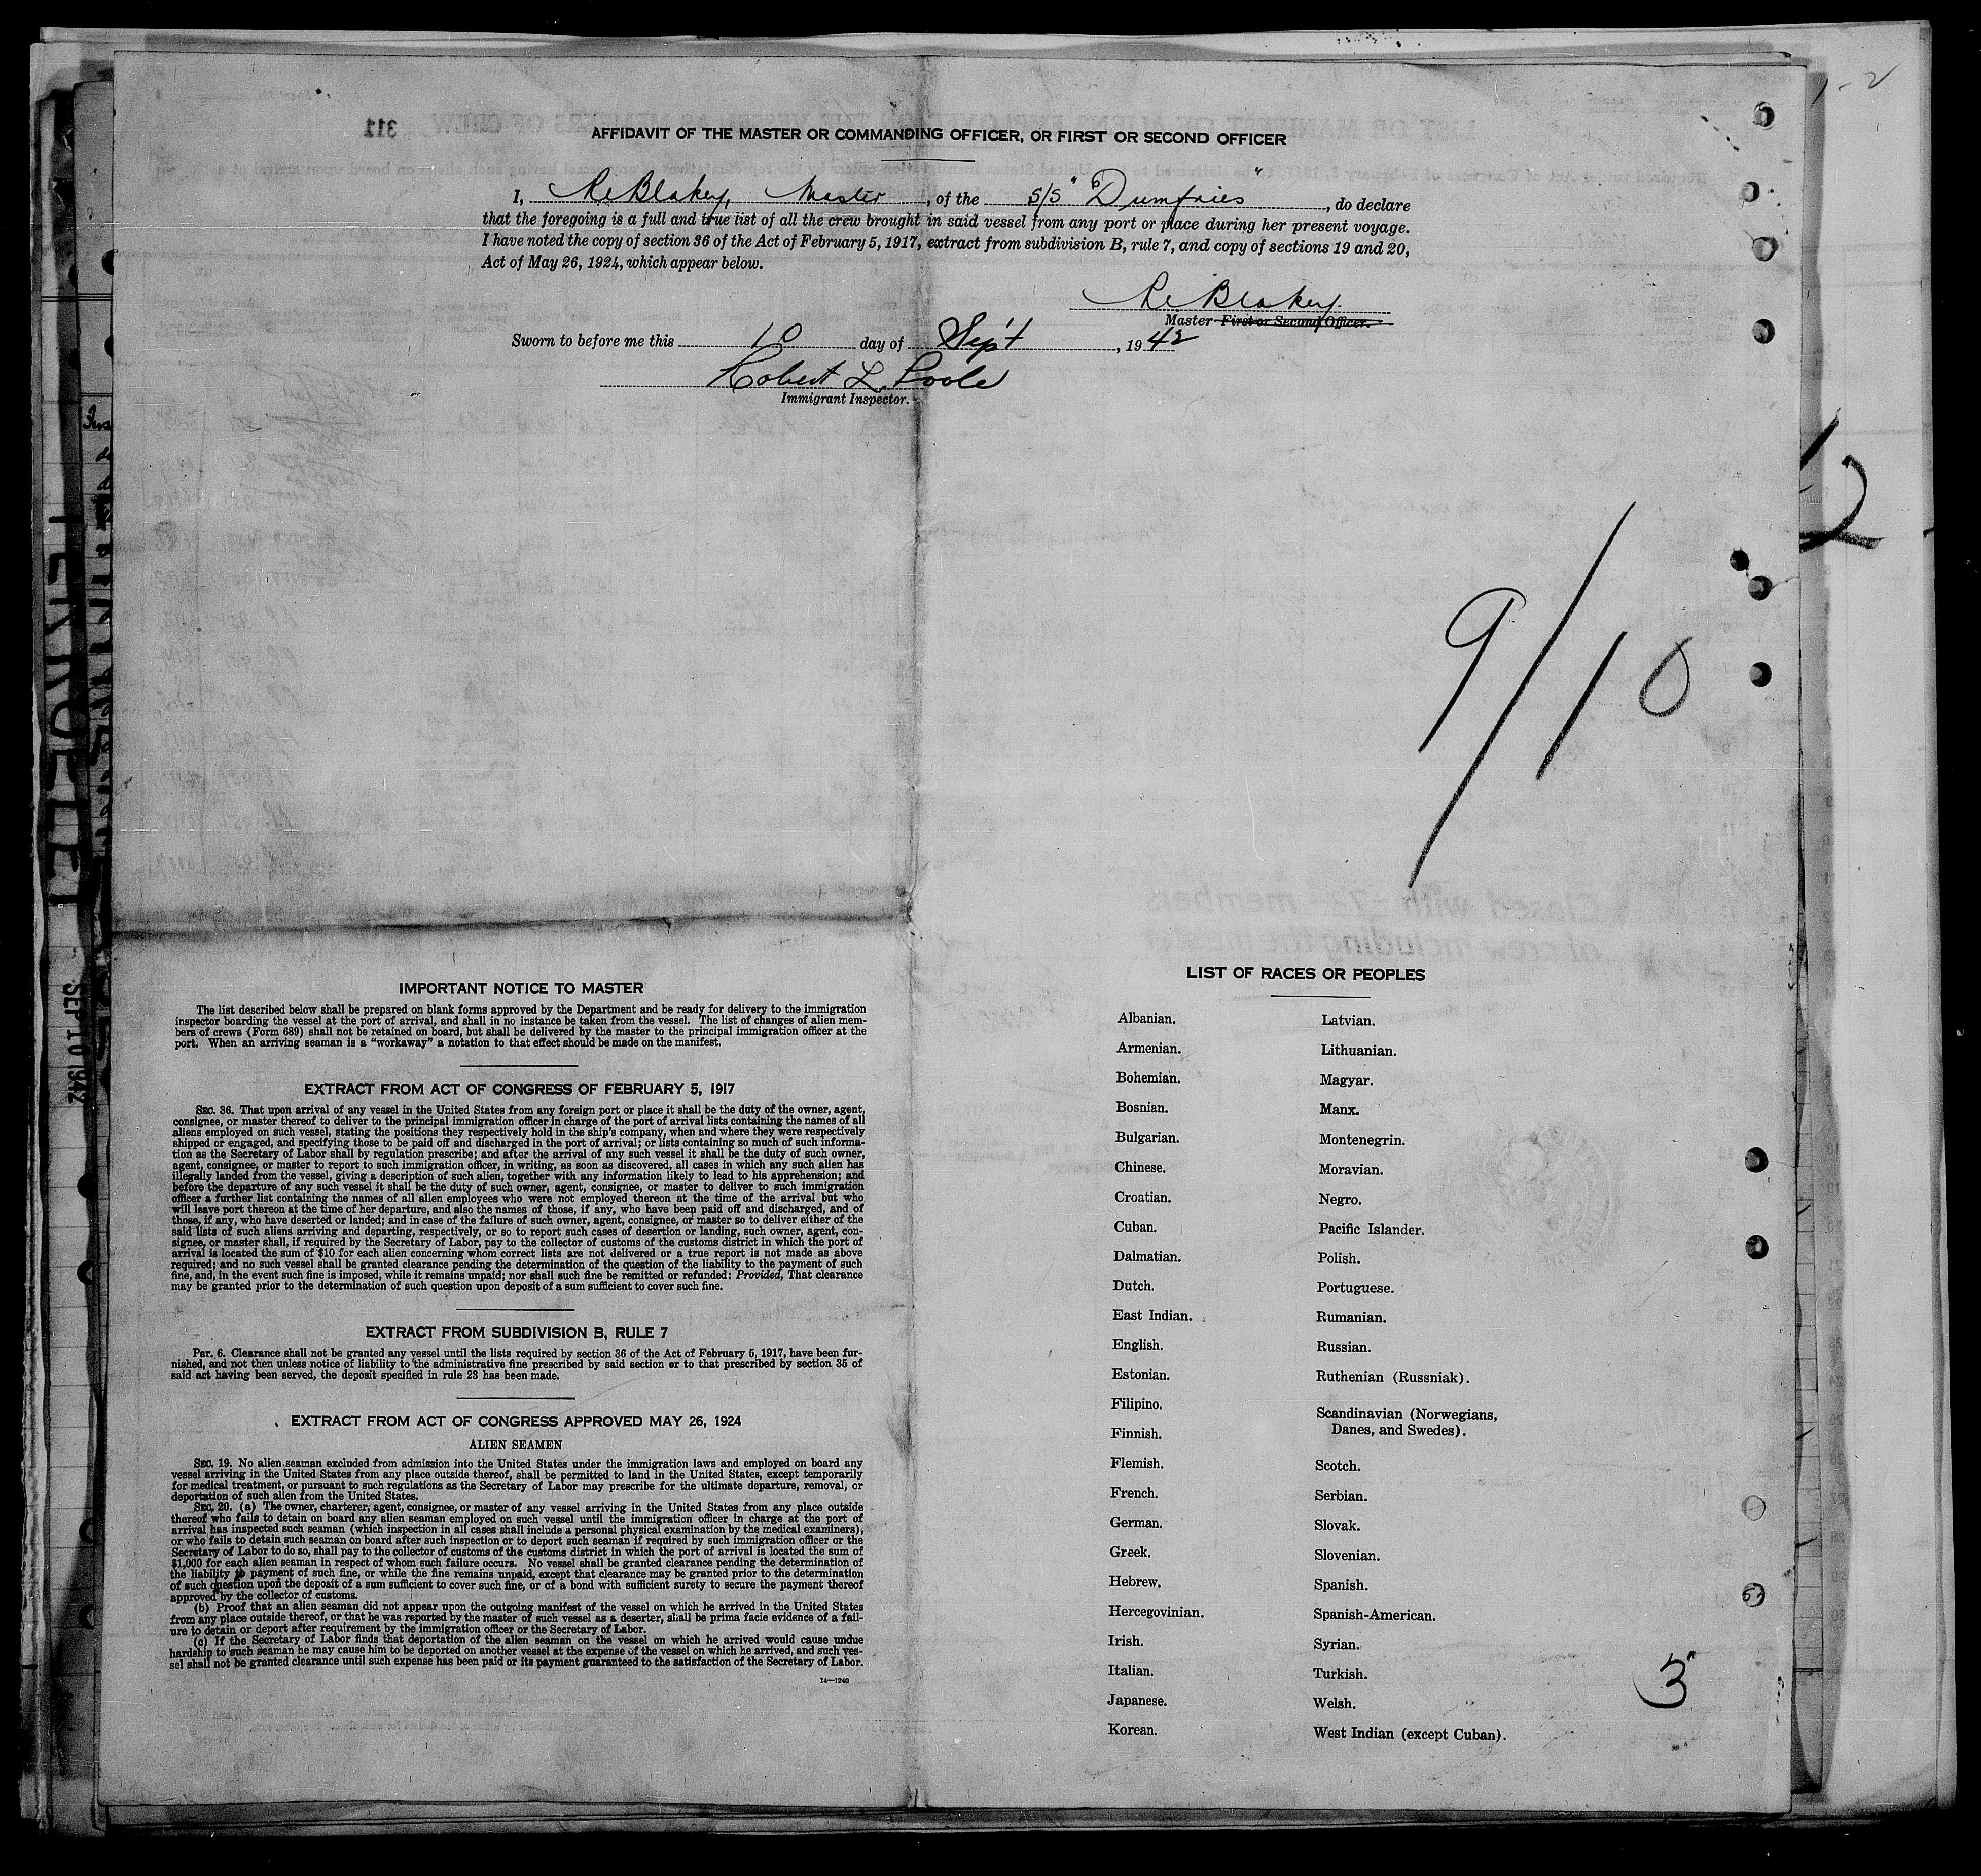 AFFIDAVIT OF THE MASTER OR COMMANDING OFFICER, OR FIRST OR SECOND OFFICER
I, Re Blakey, Master, of the S/S "Dumfries", do declare
that the foregoing is a full and true list of all the crew brought in said vessel from any port or place during her present voyage.
I have noted the copy of section 36 of the Act of February 5, 1917, extract from subdivision B, rule 7, and copy of sections 19 and 20,
Act of May 26, 1924, which appear below.
Re Blakey.
Master First or Second Officer.
Sworn to before me this 10 day of Sep't, 1942
Robert L. Poole
Immigrant Inspector.
9/10
IMPORTANT NOTICE TO MASTER
The list described below shall be prepared on blank forms approved by the Department and be ready for delivery to the immigration
inspector boarding the vessel at the port of arrival, and shall in no instance be taken from the vessel. The list of changes of alien mem-
bers of crews (Form 689) shall not be retained on board, but shall be delivered by the master to the principal immigration officer at the
port. When an arriving seaman is a "workaway" a notation to that effect should be made on the manifest.
EXTRACT FROM ACT OF CONGRESS OF FEBRUARY 5, 1917
SEC. 36. That upon arrival of any vessel in the United States from any foreign port or place it shall be the duty of the owner, agent,
consignee, or master thereof to deliver to the principal immigration officer in charge of the port of arrival lists containing the names of all
aliens employed on such vessel, stating the positions they respectively hold in the ship's company, when and where they were respectively
shipped or engaged, and specifying those to be paid off and discharged in the port of arrival; or lists containing so much of such informa-
tion as the Secretary of Labor shall by regulation prescribe; and after the arrival of any such vessel it shall be the duty of such owner,
agent, consignee, or master to report to such immigration officer, in writing, as soon as discovered, all cases in which any such alien has
illegally landed from the vessel, giving a description of such alien, together with any information likely to lead to his apprehension; and
before the departure of any such vessel it shall be the duty of such owner, agent, consignee, or master to deliver to such immigration
officer a further list containing the names of all alien employees who were not employed thereon at the time of the arrival but who
will leave port thereon at the time of her departure, and also the names of those, if any, who have been paid off and discharged, and of
those, if any, who have deserted or landed; and in case of the failure of such owner, agent, consignee, or master so to deliver either of the
said lists of such aliens arriving and departing, respectively, or so to report such cases of desertion or landing, such owner, agent, con-
signee, or master shall, if required by the Secretary of Labor, pay to the collector of customs of the customs district in which the port of
arrival is located the sum of $10 for each alien concerning whom correct lists are not delivered or a true report is not made as above
required; and no such vessel shall be granted clearance pending the determination of the question of the liability to the payment of such
fine, and, in the event such fine is imposed, while it remains unpaid; nor shall such fine be remitted or refunded: Provided, That clearance
may be granted prior to the determination of such question upon deposit of a sum sufficient to cover such fine.
EXTRACT FROM SUBDIVISION B, RULE 7
Par. 6. Clearance shall not be granted any vessel until the lists required by section 36 of the Act of February 5, 1917, have been fur-
nished, and not then unless notice of liability to the administrative fine prescribed by said section or to that prescribed by section 35 of
said act having been served, the deposit specified in rule 23 has been made.
EXTRACT FROM ACT OF CONGRESS APPROVED MAY 26, 1924
ALIEN SEAMEN
SEC. 19. No alien seaman excluded from admission into the United States under the immigration laws and employed on board any
vessel arriving in the United States from any place outside thereof, shall be permitted to land in the United States, except temporarily
for medical treatment, or pursuant to such regulations as the Secretary of Labor may prescribe for the ultimate departure, removal, or
deportation of such alien from the United States.
SEC. 20. (a) The owner, charterer, agent, consignee, or master of any vessel arriving in the United States from any place outside
thereof who fails to detain on board any alien seaman employed on such vessel until the immigration officer in charge at the port of
arrival has inspected such seaman (which inspection in all cases shall include a personal physical examination by the medical examiners),
or who fails to detain such seaman on board after such inspection or to deport such seaman if required by such immigration officer or the
Secretary of Labor to do so, shall pay to the collector of customs of the customs district in which the port of arrival is located the sum of
$1,000 for each alien seaman in respect of whom such failure occurs. No vessel shall be granted clearance pending the determination of
the liability to payment of such fine, or while the fine remains unpaid, except that clearance may be granted prior to the determination
of such question upon the deposit of a sum sufficient to cover such fine, or of a bond with sufficient surety to secure the payment thereof
approved by the collector of customs.
(b) Proof that an alien seaman did not appear upon the outgoing manifest of the vessel on which he arrived in the United States
from any place outside thereof, or that he was reported by the master of such vessel as a deserter, shall be prima facie evidence of a fail-
ure to detain or deport after requirement by the immigration officer or the Secretary of Labor.
(c) If the Secretary of Labor finds that deportation of the alien seaman on the vessel on which he arrived would cause undue
hardship to such seaman he may cause him to be deported on another vessel at the expense of the vessel on which he arrived, and such ves-
sel shall not be granted clearance until such expense has been paid or its payment guaranteed to the satisfaction of the Secretary of Labor.
14—1240
LIST OF RACES OR PEOPLES
Albanian.
Armenian.
Bohemian.
Bosnian.
Bulgarian.
Chinese.
Croatian.
Cuban.
Dalmatian.
Dutch.
East Indian.
English.
Estonian.
Filipino.
Finnish.
Flemish.
French.
German.
Greek.
Hebrew.
Hercegovinian.
Irish.
Italian.
Japanese.
Korean.
Latvian.
Lithuanian.
Magyar.
Manx.
Montenegrin.
Moravian.
Negro.
Pacific Islander.
Polish.
Portuguese.
Rumanian.
Russian.
Ruthenian (Russniak).
Scandinavian (Norwegians,
Danes, and Swedes).
Scotch.
Serbian.
Slovak.
Slovenian.
Spanish.
Spanish-American.
Syrian.
Turkish.
Welsh.
West Indian (except Cuban).
3
SEP 10 1942
2
311
Closed with -72- members
of crew including the master